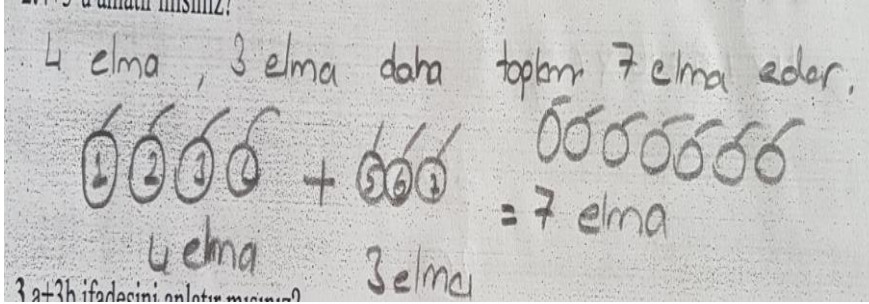 4 elma, 3 elma daha toplam 7 elma eder.
1 2 3 4 + 5 6 7
= 7 elma
4 elma
3 elma
3.a+3b ifadesini anlatır mısınız?